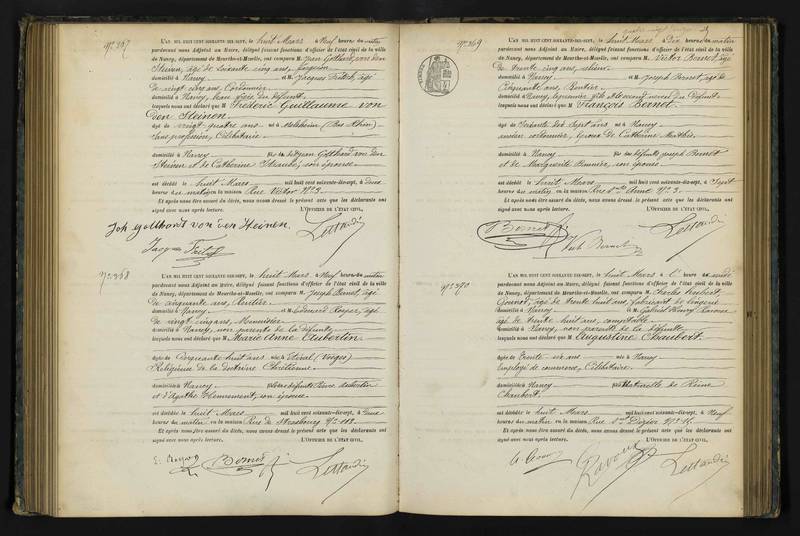 N° 367
L'AN MIL HUIT CENT SOIXANTE-DIX-SEPT, le huit Mars à Neuf heures du matin
pardevant nous Adjoint au Maire, délégué faisant fonctions d'officier de l'état civil de la ville
de Nancy, département de Meurthe-et-Moselle, ont comparu M. Jean Gotthard von den
Steinen, âgé de soixante cinq ans,
domicilié à Nancy et M. Jacques Fritsch, âgé
de vingt cinq ans, Cordonnier,
domicilié à Nancy, beau père du défunt
lesquels nous ont déclaré que M. Frédéric Guillaume von
Den Steinen
âgé de vingt-quatre ans né à Molsheim (Bas Rhin)
sans profession, Célibataire
domicilié à Nancy fils de Jean Gotthard von den
Steinen et de Catherine Straube, son épouse
est décédé le huit Mars mil huit cent soixante-dix-sept, à deux
heures du matin en la maison Rue Victor N° 3
Et après nous être assuré du décès, nous avons dressé le présent acte que les déclarants ont
signé avec nous après lecture. L'OFFICIER DE L'ÉTAT CIVIL,
Joh gotthart von den Steinen
N° 368
L'AN MIL HUIT CENT SOIXANTE-DIX-SEPT, le huit Mars à Neuf heures du matin
pardevant nous Adjoint au Maire, délégué faisant fonctions d'officier de l'état civil de la ville
de Nancy, département de Meurthe-et-Moselle, ont comparu M. Joseph Bernet, âgé
de cinquante ans, Rentier
domicilié à Nancy et M. Edouard Rosper, âgé
de vingt cinq ans, Menuisier
domicilié à Nancy, non parents de la défunte
lesquels nous ont déclaré que M Marie Anne Aubertin
âgée de Cinquante huit ans née à Etival (Vosges)
Religieuse de la doctrine Chrétienne
domiciliée à Nancy fille des défunts Pierre Aubertin
et d'Agathe son épouse
est décédée le huit Mars mil huit cent soixante-dix-sept, à deux
heures du matin en la maison Rue de Strasbourg N° 113
Et après nous être assuré du décès, nous avons dressé le présent acte que les déclarants ont
signé avec nous après lecture. L'OFFICIER DE L'ÉTAT CIVIL,
Bernet
N° 369
L'AN MIL HUIT CENT SOIXANTE-DIX-SEPT, le huit Mars à Dix heures du matin
pardevant nous Adjoint au Maire, délégué faisant fonctions d'officier de l'état civil de la ville
de Nancy, département de Meurthe-et-Moselle, ont comparu M. Victor Bernet, âgé
de trente cinq ans,
domicilié à Nancy et M. Joseph Bernet, âgé de
Cinquante ans, Rentier
domicilié à Nancy, le premier fils le second neveu du défunt
lesquels nous ont déclaré que M. François Bernet
âgé de Soixante dix sept ans né à Nancy
ancien cordonnier, époux de Catherine Mathis
domicilié à Nancy fils des défunts Joseph Bernet
et de Marguerite son épouse
est décédé le huit Mars mil huit cent soixante-dix-sept, à Sept
heures du matin en la maison Rue N° 3
Et après nous être assuré du décès, nous avons dressé le présent acte que les déclarants ont
signé avec nous après lecture. L'OFFICIER DE L'ÉTAT CIVIL,
Bernet
N° 370
L'AN MIL HUIT CENT SOIXANTE-DIX-SEPT, le huit Mars à Une heure de midi
pardevant nous Adjoint au Maire, délégué faisant fonctions d'officier de l'état civil de la ville
de Nancy, département de Meurthe-et-Moselle, ont comparu M. Charles
âgé de trente huit ans, fabricant de lingerie
domicilié à Nancy et M. Gabriel Henry Ravoux
âgé de trente huit ans, comptable
domicilié à Nancy, non parents de la défunte
lesquels nous ont déclaré que M Augustine Chaubert
âgée de Trente six ans née à Nancy
employée de commerce, Célibataire
domiciliée à Nancy fille naturelle de Reine
Chaubert
est décédée le huit Mars mil huit cent soixante-dix-sept, à Neuf
heures du matin, en la maison Rue St Dizier
Et après nous être assuré du décès, nous avons dressé le présent acte que les déclarants ont
signé avec nous après lecture. L'OFFICIER DE L'ÉTAT CIVIL,
Ravoux